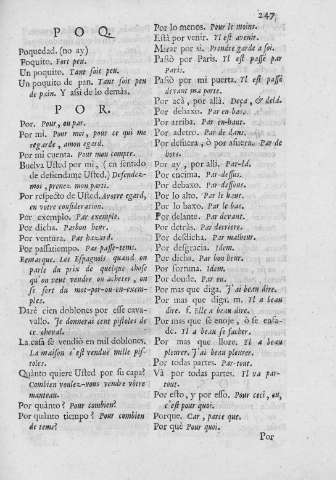 247
POQ.
Poquedad. (no ay)
Poquito. Fort peu.
Un poquito. Tant soit peu.
Un poquito de pan. Tant soit peu
de pain. Y assi de lo demás.
POR.
Por. Pour, ou par.
Por mi. Pour moi, pour ce qui me
regarde, a mon egard.
Por mi cuenta. Pour mon compte.
Buelva Usted por mi, (en sentido
de defiendame Usted,) Defendez-
moi, prenez mon parti.
Por respecto de Usted. A votre egard,
en votre consideration.
Por exemplo. Par exemple.
Por dicha. Par bon heur.
Por ventura. Par hazard.
Por passatiempo. Par passe-tems.
Remarque. Les Espagnols quand on
parle du prix de quelque chose
qu'on veut vendre ou acheter, on
se sert du mot-por-ou en-exem-
ples.
Daré cien doblones por esse cava-
vallo. Je donnerai cent pistoles de
ce cheval.
La casa se vendió en mil doblones.
La maison s'est vendué mille pis-
toles.
Quánto quiere Usted por su capa?
Combien voulez-vous vendre vôtre
manteau.
Por quánto? Pour combien?
Por quánto tiempo? Pour combien
de tems?
Por lo menos. Pour le moins.
Está por venir. Il est à venir.
Mirar por si. Prendre garde a soi.
Passó por Paris. Il est passé par
Paris.
Passó por mi puerta. Il est passé
devant ma porte.
Por acá, por allá. Deça, & delà.
Por debaxo. Par en bas.
Por arriba. Par en-haut.
Por adetro. Par de dans.
Por defuera, ò por afuera. Par de
hors.
Por ay, por allí. Par-là.
Por encima. Par-dessus.
Por debaxo. Par-dessous.
Por lo alto. Par le haut.
Por lo baxo. Par le bas.
Por delante. Par devant.
Por detrás. Par derriere.
Por desdicha. Par malheur.
Por desgracia. Idem.
Por dicha. Par bon heur
Por fortuna. Idem.
Por donde. Par ou.
Por mas que diga. J'ai beau dire.
Por mas que diga. m. Il a beau
dire. f. Elle a beau dire.
Por mas que se enoje, ò se enfa-
de. Il a beau se facher.
Por mas que llore. Il a beau
pleurer. J'ai beau pleurer.
Por todas partes. Par-tout.
Vá por todas partes. Il va par-
tout.
Por esto, y por esso. Pour ceci, ou,
c'est pour quoi.
Porque. Car, parce que.
Por qué Pour quoi.
Por